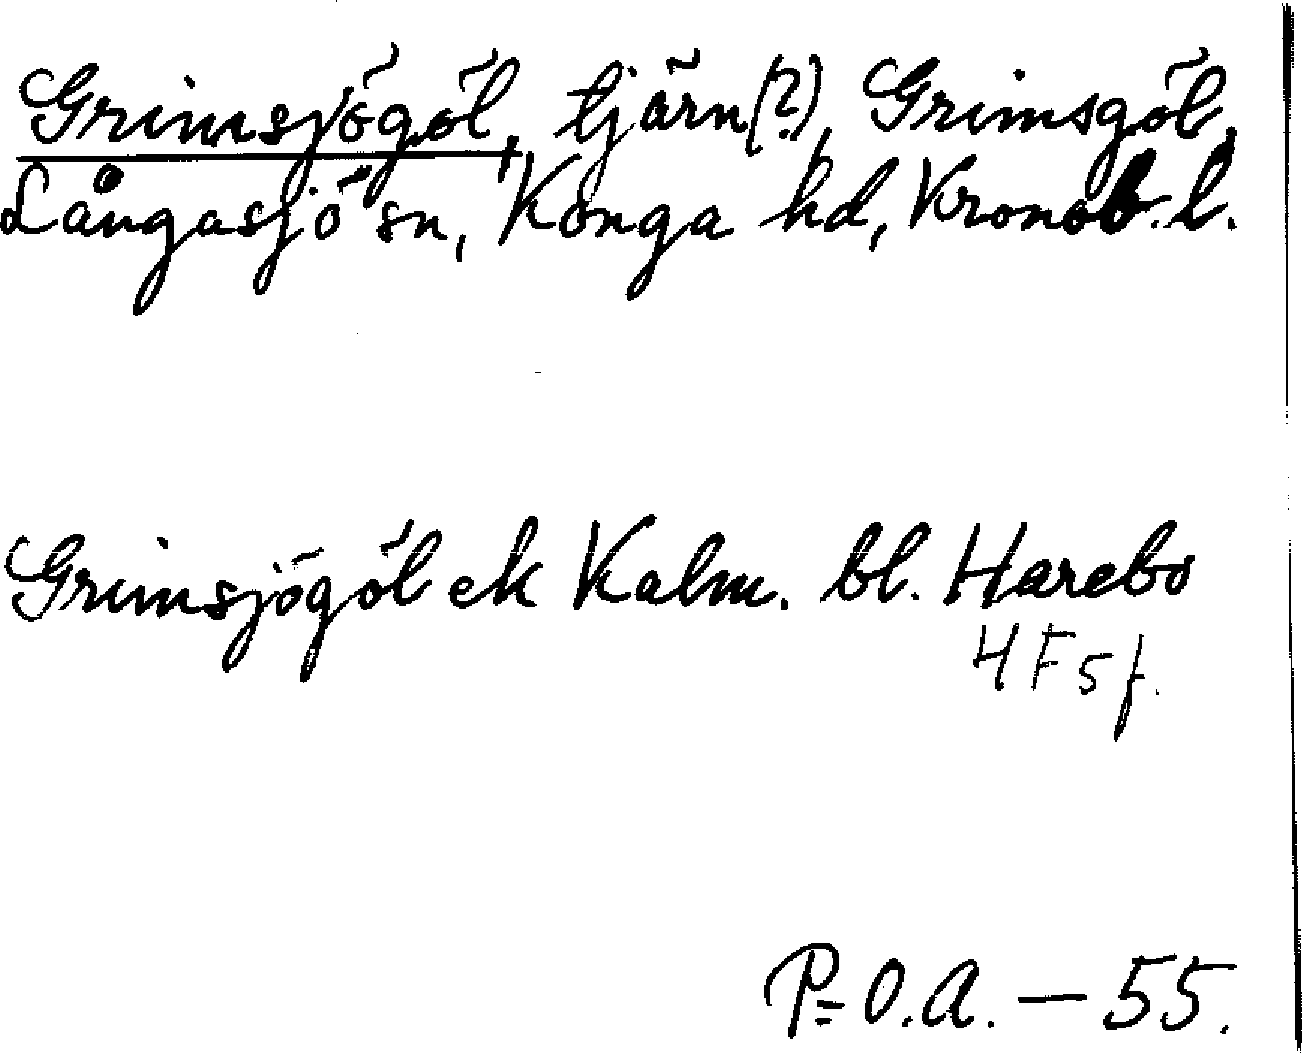 Grimsjögöl, tjärn(?), Grimsgöl,
Långasjö sn, Konga hd, Kronob. l.
Grimsjögöl ek Kalm. bl. Harebo
4F5f.
P-O.A. — 55.